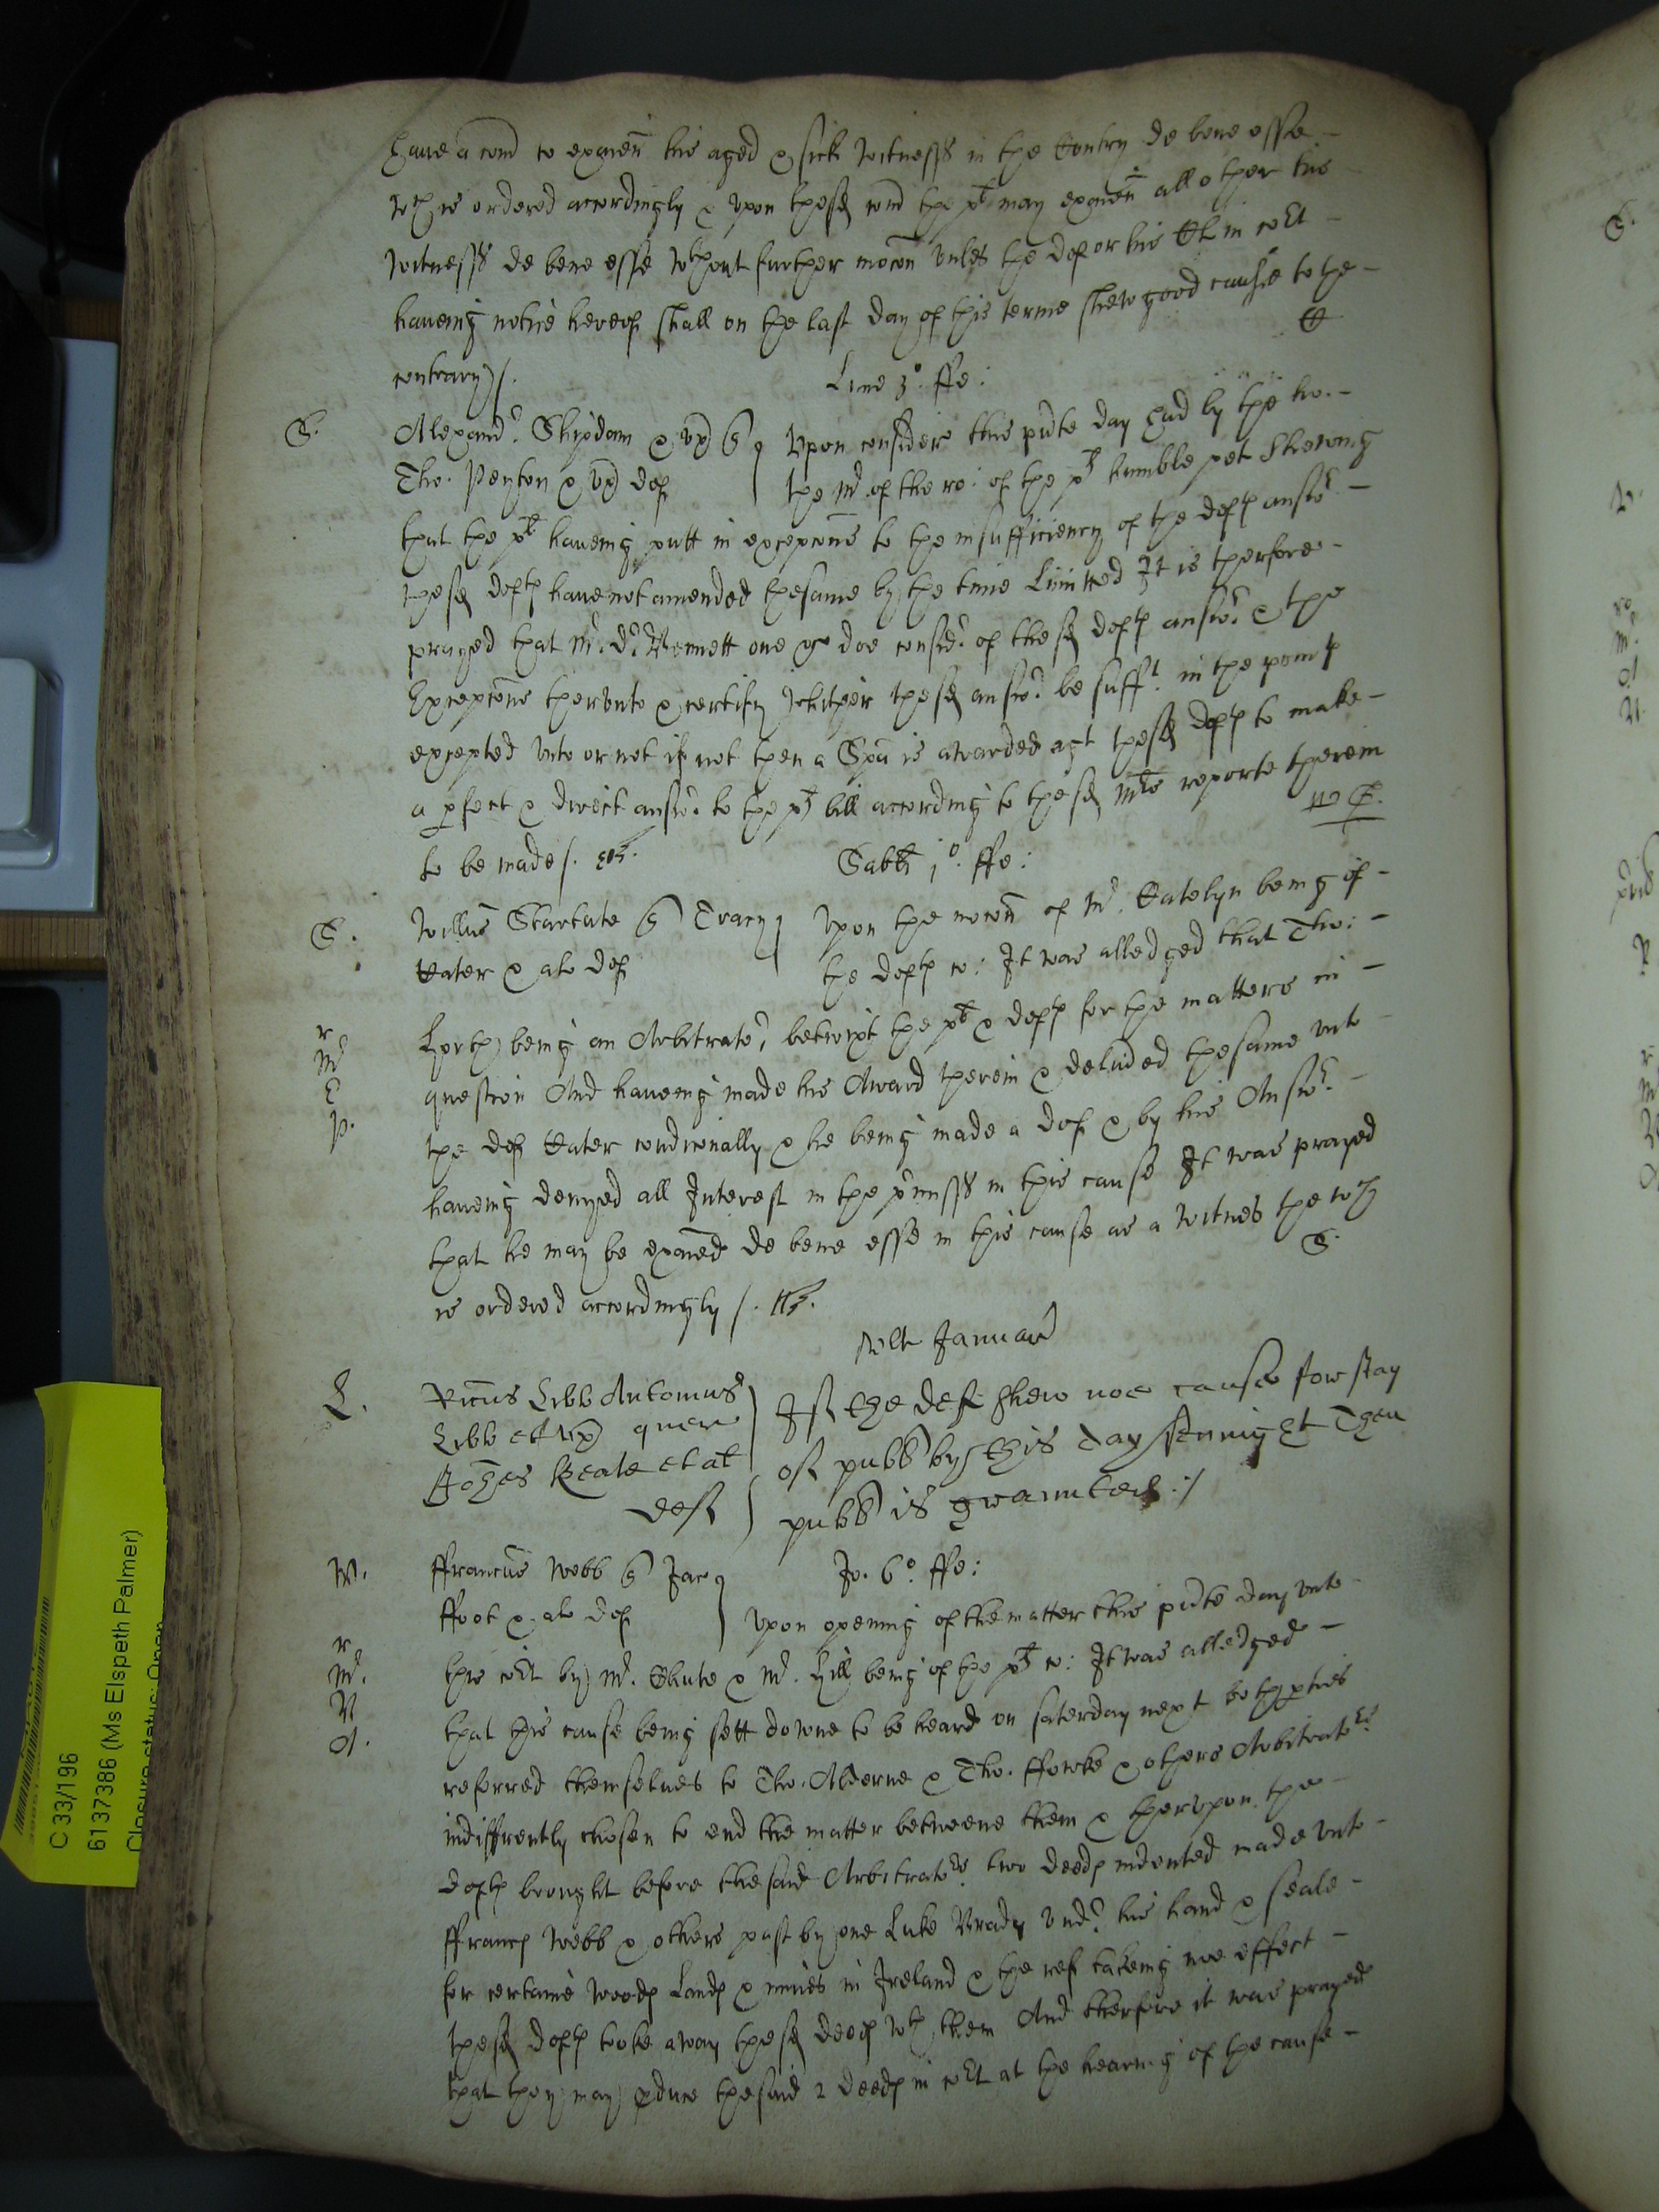 haue a com to exaīen his aged & sick witnesss in the Contry de bene esse –
wch is ordered accordingly & vpon thesd com the plt may exaīen all other his –
witnesss de bene esse wthout further mocōn vnles the def or his Cl in coᵗ –
haueing notice hereof shall on the last day of this terme shew good cause to the –
contrary /.
Lune 3° ffe:
S.
Alexandʳ Shipdam & vx
Tho. Penton & vx def
Vpon consideʳ this pnte day had by the ho. –
the Mʳ of the ro: of the plts humble pet shewing
that the plt haueing putt in excepcōns to the insufficiency of the defts answʳ –
thesd defts haue not amended thesame by the time Limitted It is therfore –
prayed that Mʳ Dʳ Bennett one &c doe consid of thesd defts answʳ & the
Excepcōns thervnto & certify whither thesd answʳ be sufft in the points
excepted vnto or not if not then a Spa is awarded agt thesd defts to make –
a pfect & direct answʳ to the plts bill according to thesd Mʳs reporte therein
to be made /.
Sabti j°. ffe:
S.
Willus Startute Tracy
Cater & als def
Vpon the mocōn of Mʳ. Catelyn being of –
the defts co: It was alledged that Tho: –
r
Mʳ
E
P.
being an Arbitratoʳ betwixt the plt & defts for the matters in –
question And haueing made his Award therein & deliuded thesame vnto –
the def Cater condicionally & he being made a def & by his Answʳ –
haueing denyed all Interest in the pʳmisss in this cause It was prayed
that he may be exaīed de bene esse in this cause as a witnes the wch
S.
is ordered accordingly /.
vlt Januar
L.
Ricūs Libb Antonius
Libb et vx quer
Johes Keate et al
def
If the def shew noe cause for stay
of publ by this day sennight Then
publ is graunted :/
W.
ffranciis Webb Jac
ffoot & als def
Jo. 6°. ffe:
Vpon opening of the matter this pnte day vnto –
r
Mʳ.
N
A.
this coᵗ by Mʳ. Chute & Mʳ. Hill being of the plts co: It was alledged –
that this cause being sett downe to be heard on saterday next both pties
referred themselues to Tho. Alderne & Tho. ffowke & others Arbitratoʳs
indiffrently chosen to end the matter betweene them & thervpon the –
defts brought before the said Arbitratoʳs two deeds indented made vnto –
ffrancs Webb & others past by one Luke Brady vndʳ his hand & seale –
for certaine woods Lands & mines in Ireland & the ref takeing noe effect –
thesd defts tooke away thesd deeds wth them And therfore it was prayed
that they may pduce thesaid 2 deeds in coᵗ at the hearing of the cause –
C 33/196
6137386 (Ms Elspeth Palmer)
Closure status: Open